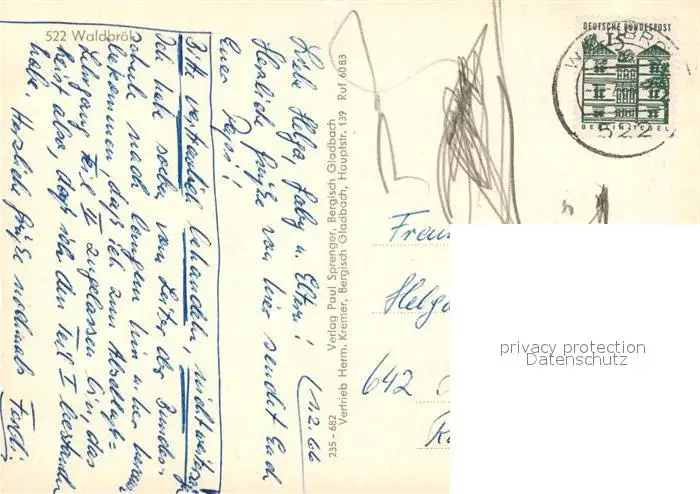 522 Waldbröl
Liebe Helga, Gaby u. Eltern! 1.2.66
Herzliche Grüße von hier sendet Euch
Euer Papi!
Bitte vertraulich behandeln, nicht
Ich habe soeben vom Leiter der Bundes-
schule nach langem hin u. her
bekommen, daß ich zum
Lehrgang Teil II zugelassen bin, das
heißt also, daß ich den Teil I bestanden
habe. Herzliche Grüße nochmals
235-682
Verlag Paul Sprenger, Bergisch Gladbach
Vertrieb Herm. Kremer, Bergisch Gladbach, Hauptstr. 139 Ruf 6083
DEUTSCHE BUNDESPOST
15
BERLIN-TEGEL
522
Helga
642
privacy protection
Datenschutz